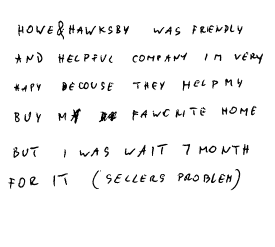 HOWE&HAWKSBY WAS FRIENDLY
AND HELPFUL COMPANY IM VERY
HAPY BECOUSE THEY HELP MY
BUY MY FAWCRITE HOME
BUT I WAS WAIT 7 MONTH
FOR IT (SELLERS PROBLEM)